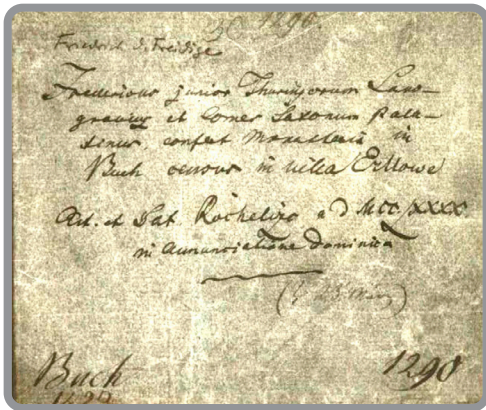 1290.
Friedrich d. Freidige
Fredericus junior Thuringorum Lans-
gravius et Comes Saxonum Pala-
tinus, confert Monasterio in
Buch census in villa Erllowe
Act. et Dat Rocheliz a D MCC/XXXX
in Annunciatione Dominica
Buch 1290